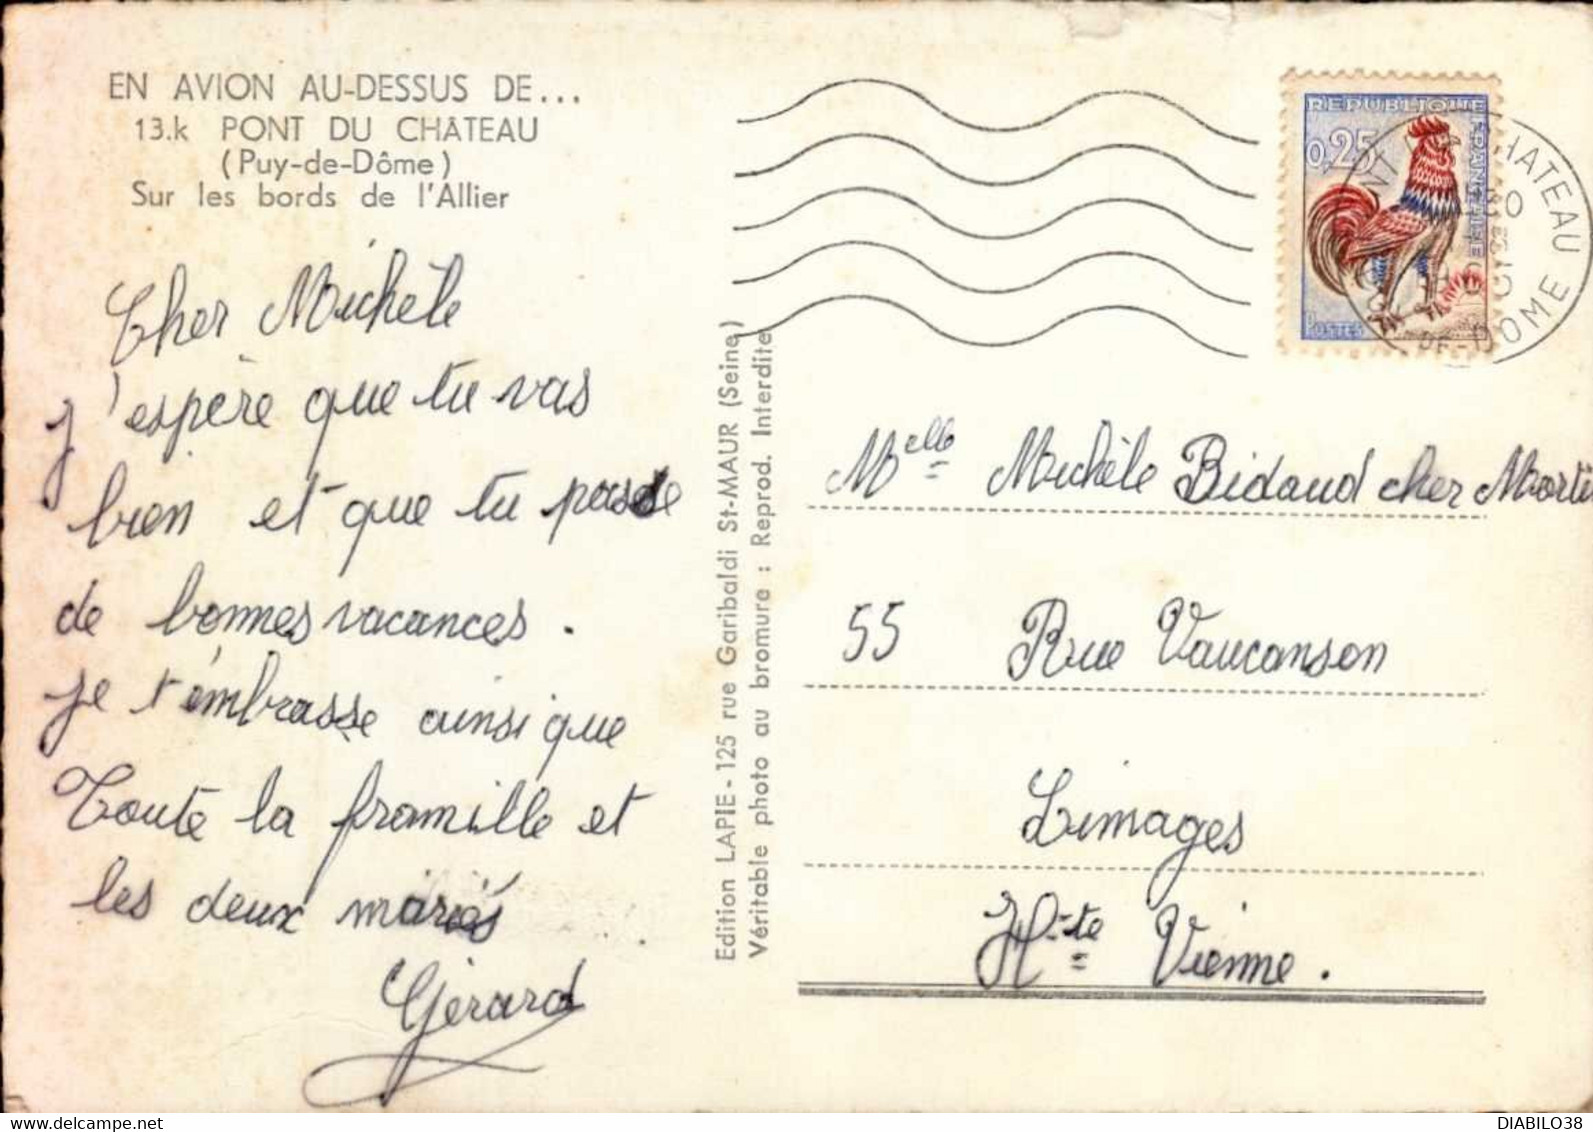 EN AVION AU-DESSUS DE...
13.k PONT DU CHÂTEAU
(Puy-de-Dôme)
Sur les bords de l'Allier
Cher Michèle
j'espère que tu vas
bien et que tu passe
de bonnes vacances.
je t'embrasse ainsi que
Toute la framille et
les deux mariés
Gérard
Edition LAPIE - 125 rue Garibaldi St-MAUR (Seine)
Véritable photo au bromure : Reprod. Interdite
REPUBLIQUE FRANÇAISE
0,25
POSTES
CHATEAU
DE-DOME
Melle Michèle Bidaud cher Morti
55 Rue Vaucanson
Limages
Hte Vienne.
DIABILO38